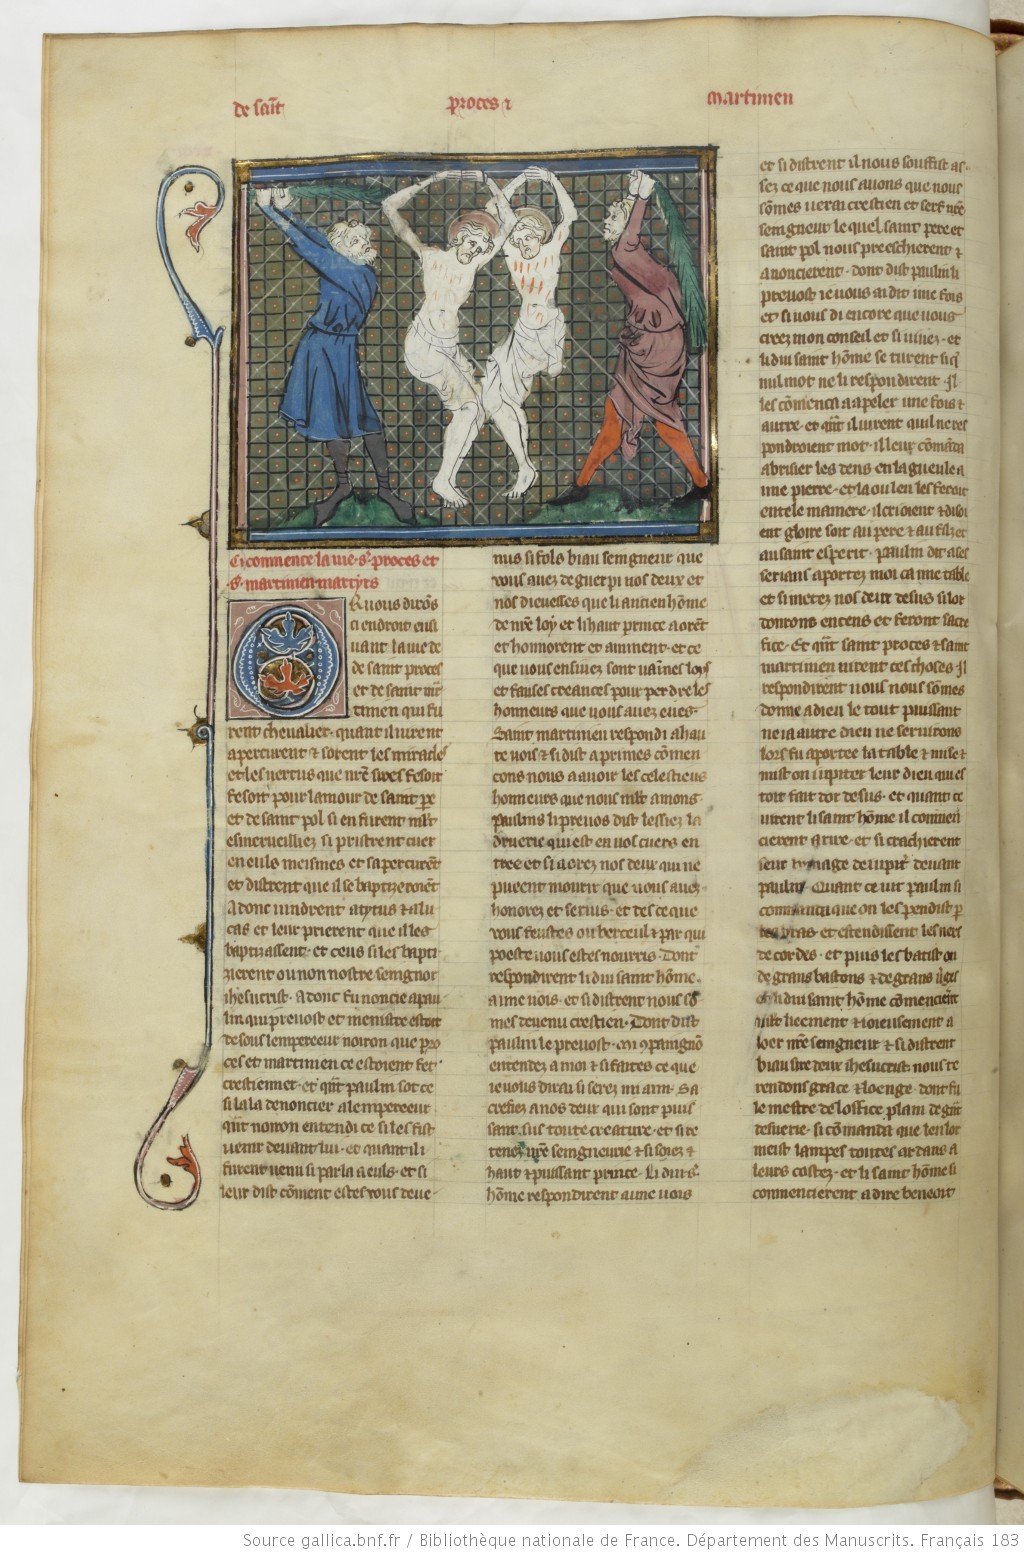 de sait proces ⁊ martinien
Ci commence la vie s. proces et
s. martinien martyrs
Or vous dirōs
ci endroit ensi
uant la vie de
de saint proces
et de saint mr̄
tinien qui fu
rent cheualier · quant il uirent
apercurent ⁊ sorent les miracles
et les uertus que nr̄e sires fesoit
fesoit pour lamour de saint pe
et de saint pol si en furent ml̄t
esmerueilliez si pristrent cuer
en euls meismes et sapercurēt
et distrent que il se baptizeroiēt
Adonc uindrent a tytus ⁊ a lu
cas et leur prierent que il les
baptizassent · et ceus si les bapti
zierent ou non nostre seignor
ihesucrist · Adonc fu noncie a pau
lin qui preuost et menistre estoit
de sous lempereeur noiron que pro
ces et martinien ce estoient fet
crestiennet · et qn̄t paulin sot ce
si la la denoncier a lempereeur
qn̄t noiron entendi ce si les fist
uenir deuant lui · et quant il i
furent uenu si parla a euls · et si
leur dist cōment estes vous deue-
nus si fols biau seingneur que
vous auez deguerpi uos deux et
nos dieuesses que li ancien hōme
de nr̄e loy et li haut prince aorēt
et honnorent et aiment · et ce
que uous ensiuez sont uaines loys
et fauses creances pour perdre les
honneurs que uous auez eues ·
Saint martinien respondi a hau
te uois ⁊ si dist a primes cōmen
cons nous a auoir les celestieus
honneurs que nous ml̄t amons ·
Paulins li preuos dist lessiez la
druerie qui est en vos cuers en
tree et si aorez nos deux qui ne
pueent mourir que uous auez
honorez et seruis · et des ce que
vous feustes ou berceul ⁊ par qui
poeste vous estes nourris · Dont
respondirent li dui saint hōme ·
a une uois · et si distrent nous sō
mes deuenu crestien · Dont dist
paulin le preuost · mi 9paignō
entendez a moi ⁊ si faites ce que
ie vous dirai si serez mi ami · Sa
crefiez a nos deux qui sont puis
sant sus toute creature · et si re
tenez ur̄e seingneurie ⁊ si soiez ⁊
haut ⁊ puissant prince · Li dui s'
hōme respondirent a une uois
et si distrent il nous souffist as-
sez ce que nous auons que nous
sōmes uerai crestien et serf nr̄e
seingneur le quel saint pere et
saint pol nous preeschierent ⁊
anoncierent · dont dist paulin li
preuost ie uous ai dit une fois
et si vous di encore que uous
creez mon conseil et si uiuez · et
li dui saint hōme se turent si q̄
nul mot ne li respondirent · Il
les cōmenca a apeler une fois ⁊
autre · et qn̄t il uirent quil ne res
pondroient mot · il leur cōmāda
a brisier les dens en la gueule a
une pierre · et la ou len les feroit
en tele maniere · il crioient ⁊ disoi
ent gloire soit au pere ⁊ au filz et
au saint esperit · Paulin dit a ses
serians aportez moi ca une table
et si metez nos deux desus si lor
donrons encens et feront sacre
fice · Et qn̄t saint proces ⁊ saint
martinien uirent ces choses · Il
respondirent nous nous sōmes
donne a dieu le tout puissant
ne ia autre dieu ne seruirons
lors fu aportee la table ⁊ mise ⁊
mist on iupiter leur dieu qui es
toit fait dor desus · et quant ce
uirent li saint hōme il commen
cierent a rire · et si crachierent
seur lymage de iupit̄ deuant
paulin · Quant ce uit paulin si
commanda que on les pendist p
les bras et estendissent les ners
de cordes · et puis les batist on
de grans bastons ⁊ de grans
et li dui saint hōme cōmencierēt
ml̄t liement ⁊ ioieusement a
loer nr̄e seingneur ⁊ si distrent
biau sire dieux ihesucrist nous te
rendons grace ⁊ loenge · dont fu
le mestre de loffice plain de gr̄t
desuerie · si cōmanda que len lor
meist lampes toutes ardans a
leurs costez · et li saint hōme si
commencierent a dire beneoit
Source gallica.bnf.fr / Bibliothèque nationale de France. Département des Manuscrits. Français 183